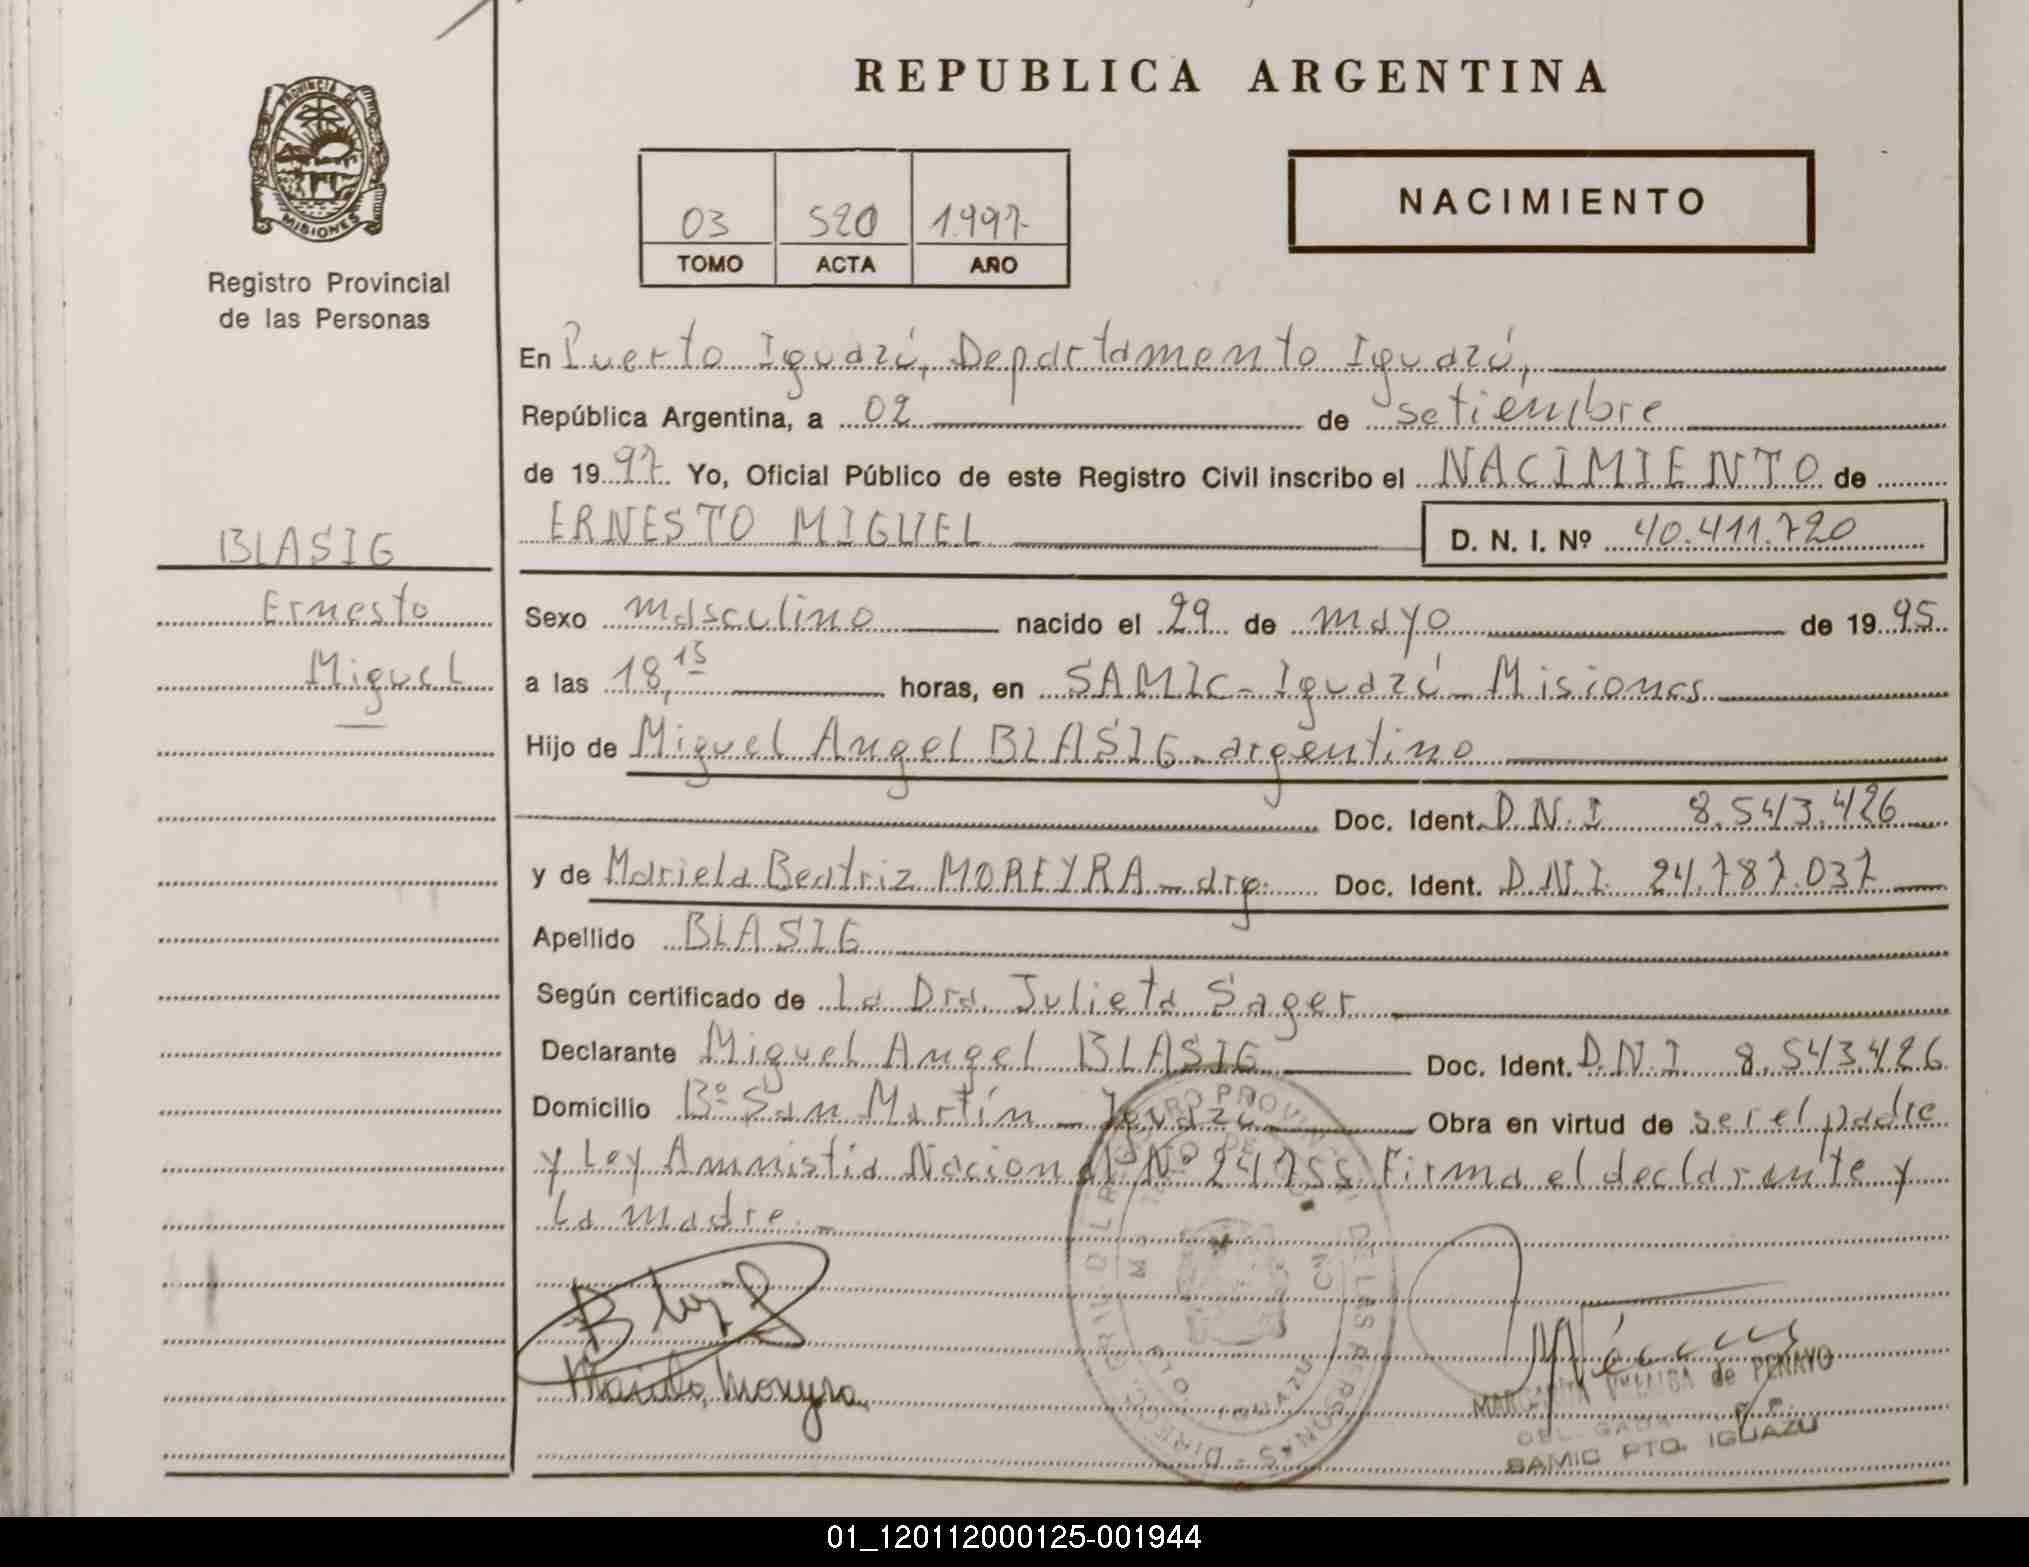 PROVINCIA DE
MISIONES
Registro Provincial
de las Personas
BLASIG
Ernesto
Miguel
REPUBLICA ARGENTINA
03 520 1.997
TOMO ACTA AÑO
NACIMIENTO
En Puerto Iguazú, Departamento Iguazú,
República Argentina, a 02 de setiembre
de 1997. Yo, Oficial Público de este Registro Civil inscribo el NACIMIENTO de
ERNESTO MIGUEL D. N. I. Nº 40.411.720
Sexo masculino nacido el 29 de mayo de 1995
a las 18,15 horas, en SAMIC - Iguazú - Misiones
Hijo de Miguel Angel BLASIG - argentino
Doc. Ident. D.N.I 8.543.426
y de Mariela Beatriz MOREYRA - arg. Doc. Ident. D.N.I. 24.787.037
Apellido BLASIG
Según certificado de La Dra. Julieta Sager
Declarante Miguel Angel BLASIG Doc. Ident. D.N.I 8.543.426
Domicilio Bº San Martín - Iguazú Obra en virtud de ser el padre
y Ley Amnistia Nacional Nº 24.755. Firma el declarante y
la madre. -
PTO. IGUAZU
MARGARITA VILLALBA de PENAYO
SAMIC PTO. IGUAZU
01_120112000125-001944